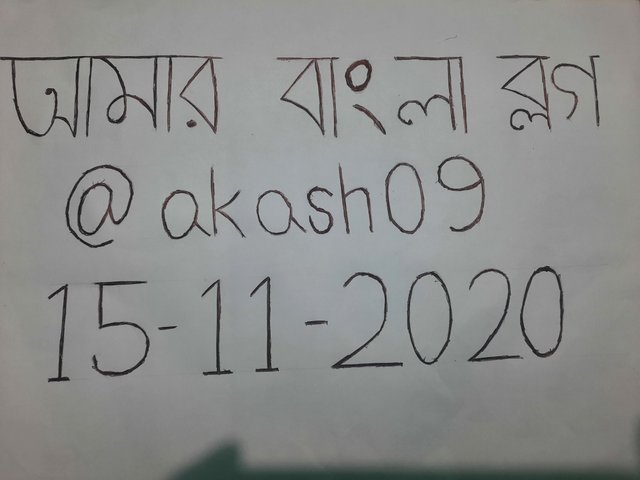 আমার বাংলা ব্লগ
@akash09
15-11-2020